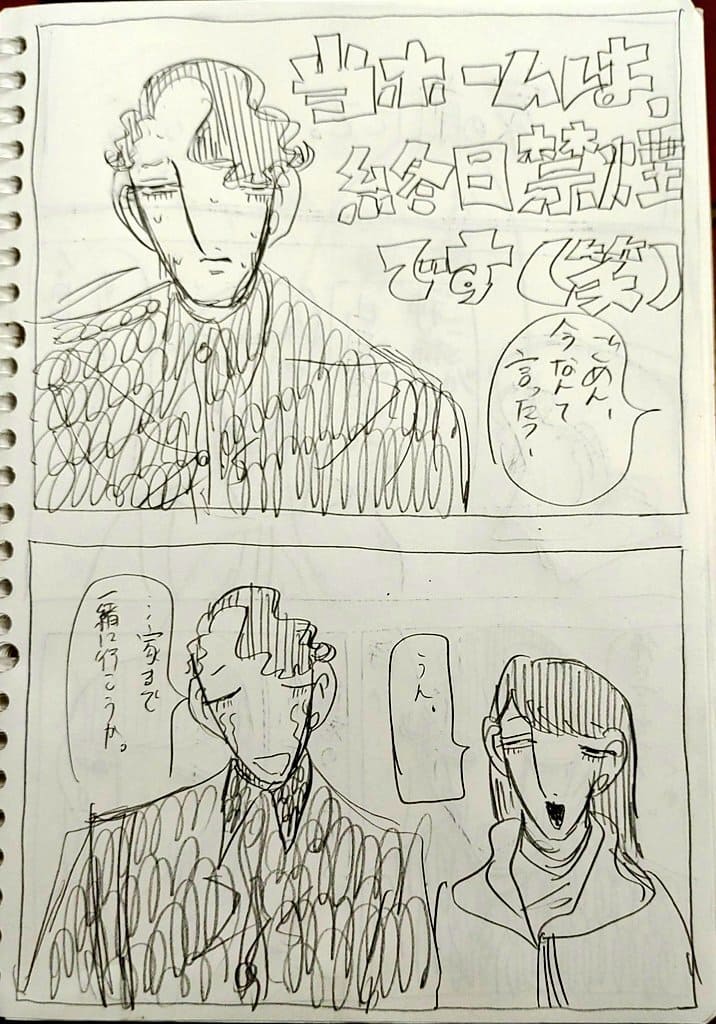 当ホームは、
終日禁煙
です(笑)
ごめん、
今なんて
言った?
うん。
…家まで
一緒に行こうか。